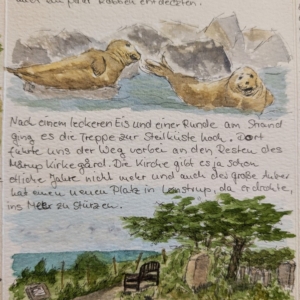 Robben entdeckten.
Nach einem leckeren Eis und einer Runde am Strand
ging es die Treppe zur Steilküste hoch. Dort
führte uns der Weg vorbei an den Resten des
Mårup Kirkegård. Die Kirche gibt es ja schon
etliche Jahre nicht mehr und auch das große Anker
hat einen neuen Platz in Lønstrup, da er drohte,
ins Meer zu stürzen.